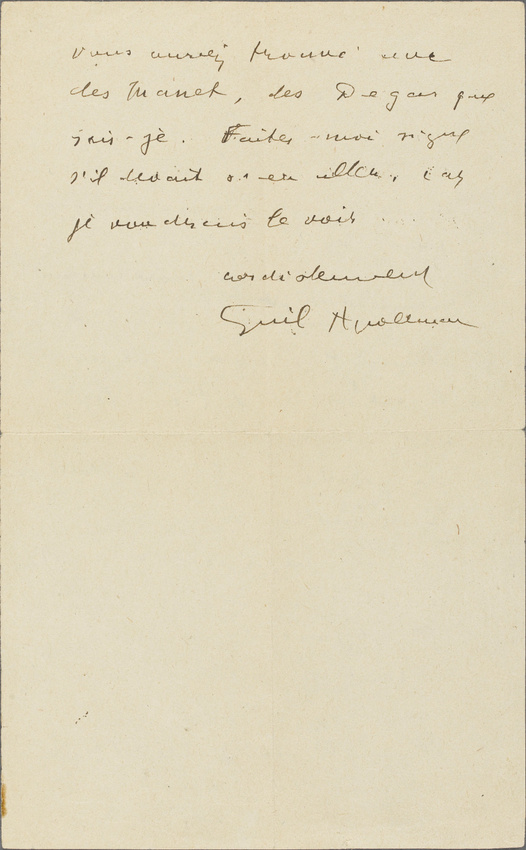 vous auriez trouvé avec
des Manet, des Degas que
sais-je. Faites-moi signe
s'il devait s'en aller, car
je voudrais le voir
cordialement
Guil Apollinaire